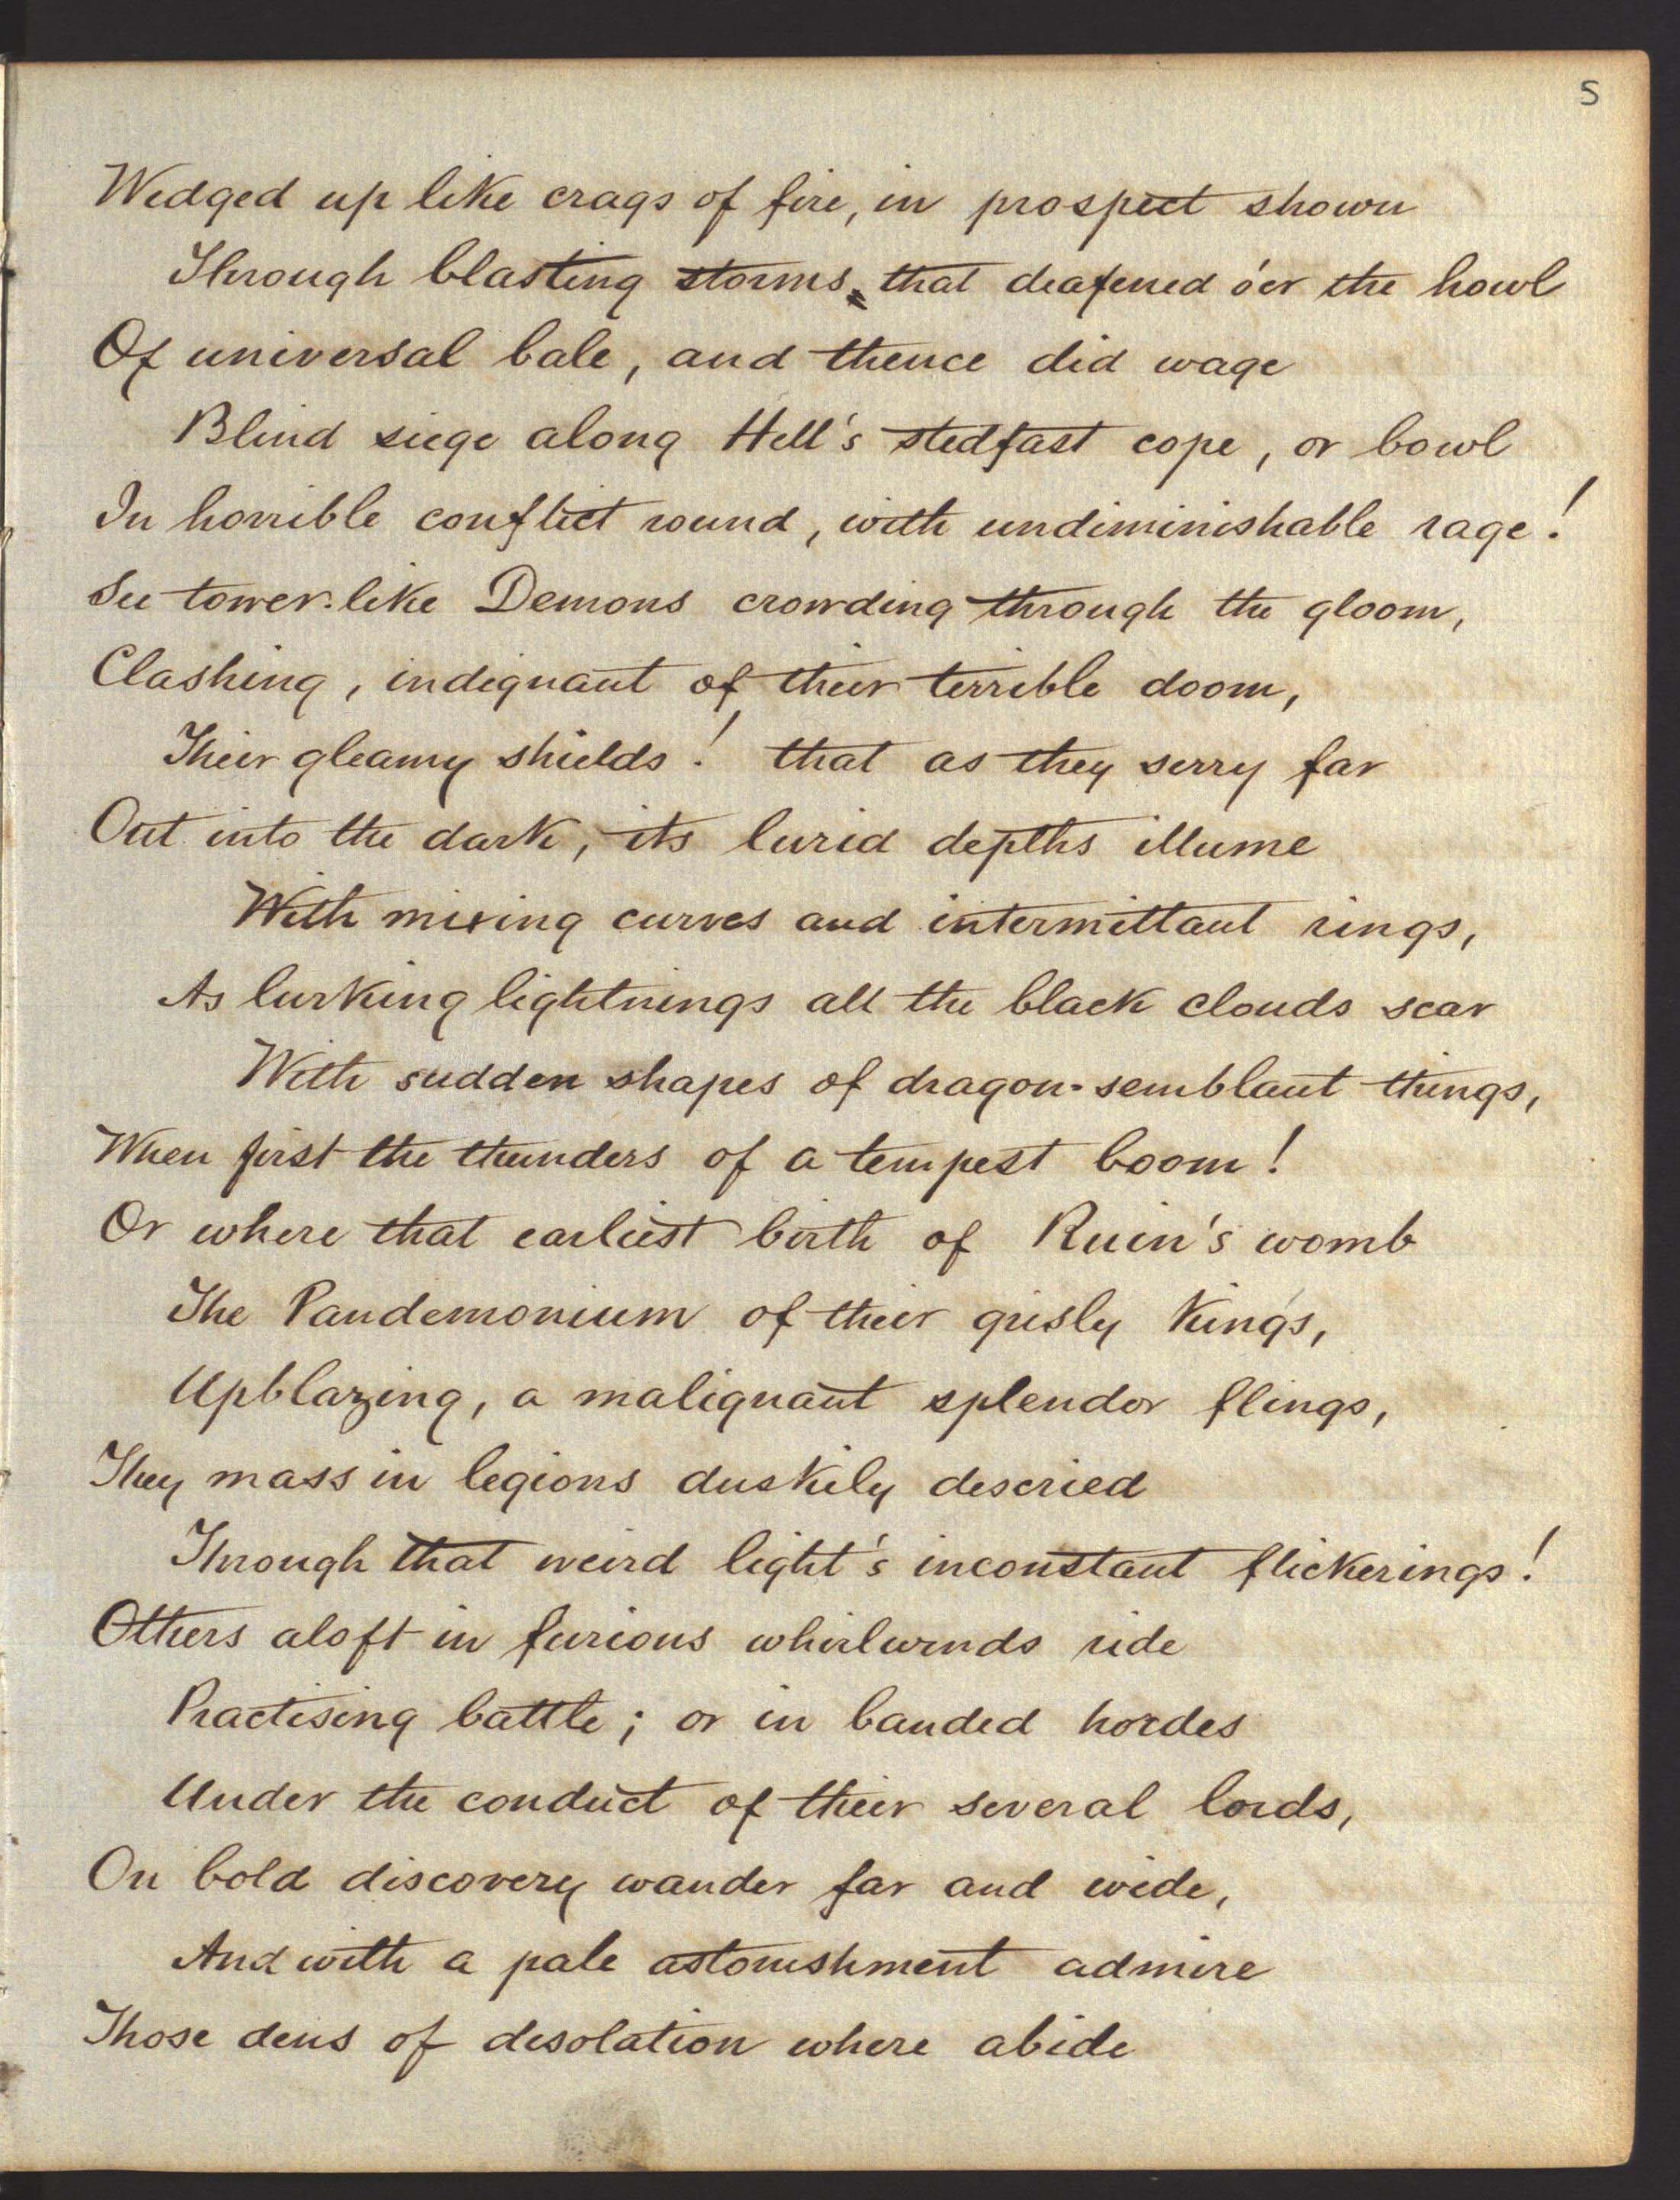 5
Wedged up like crags of fire, in prospect shown
Through blasting storms, that deafened o'er the howl
Of universal bale, and thence did wage
Blind siege along Hell's stedfast cope, or bowl
In horrible conflict round, with undiminishable rage!
See tower-like Demons crowding through the gloom,
Clashing, indignant of their terrible doom,
Their gleamy shields! that as they serry far
Out into the dark, its lurid depths illume
With mixing curves and intermittant rings,
As lurking lightnings all the black clouds scar
With sudden shapes of dragon-semblant things,
When first the thunders of a tempest boom!
Or where that earliest birth of Ruin's womb
The Pandemonium of their grisly Kings,
Upblazing, a malignant splendor flings,
They mass in legions duskily descried
Through that weird light's inconstant flickerings!
Others aloft in furious whirlwinds ride
Practising battle; or in banded hordes
Under the conduct of their several lords,
On bold discovery wander far and wide,
And with a pale astonishment admire
Those dens of desolation where abide